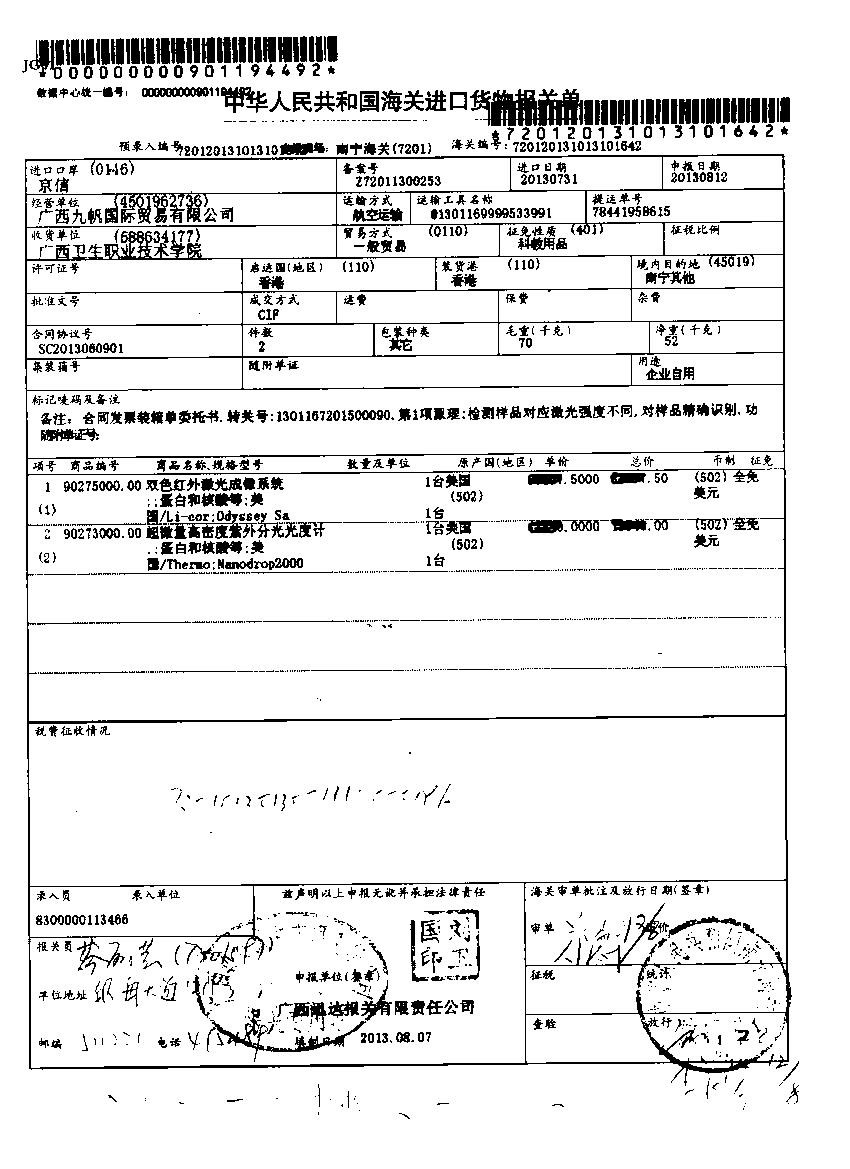 *0000000000901194492*
数据中心统一编号: 0000000000901194492
中华人民共和国海关进口货物报关单
*720120131013101642*
预录入编号: 南宁海关(7201) 海关编号:720120131013101642
进口口岸 (0146) 备案号 进口日期 申报日期
京信 Z72011300253 20130731 20130812
经营单位 (4501962736) 运输方式 运输工具名称 提运单号
广西九帆国际贸易有限公司 航空运输 @1301169999533991 78441958615
收货单位 (688634177) 贸易方式 (0110) 征免性质 (401) 征税比例
广西卫生职业技术学院 一般贸易 科教用品
许可证号 启运国(地区) (110) 装货港 (110) 境内目的地 (45019)
香港 香港 南宁其他
批准文号 成交方式 运费 保费 杂费
CIF
合同协议号 件数 包装种类 毛重(千克) 净重(千克)
SC2013060901 2 其它 70 52
集装箱号 随附单证 用途
企业自用
标记唛码及备注
备注: 合同发票装箱单委托书.转关号:1301167201500090.第1项原理:检测样品对应激光强度不同,对样品精确识别.功
随附单证号:
项号 商品编号 商品名称、规格型号 数量及单位 原产国(地区) 单价 总价 币制 征免
1 90275000.00 双色红外激光成像系统 1台美国 .5000 .50 (502) 全免
(1) .:蛋白和核酸等;美 (502) 美元
国/Li-cor;Odyssey Sa 1台
2 90273000.00 超微量高密度紫外分光光度计 1台美国 .0000 .00 (502) 全免
(2) .:蛋白和核酸等;美 (502) 美元
国/Thermo;Nanodrop2000 1台
税费征收情况
录入员 录入单位 兹声明以上申报无讹并承担法律责任 海关审单批注及放行日期(签章)
8300000113466
报关员 国刘 审单 审价
印卫
申报单位(签章)
单位地址 征税 统计
广西迅达报关有限责任公司
邮编 电话 填制日期 2013.08.07 查验 放行